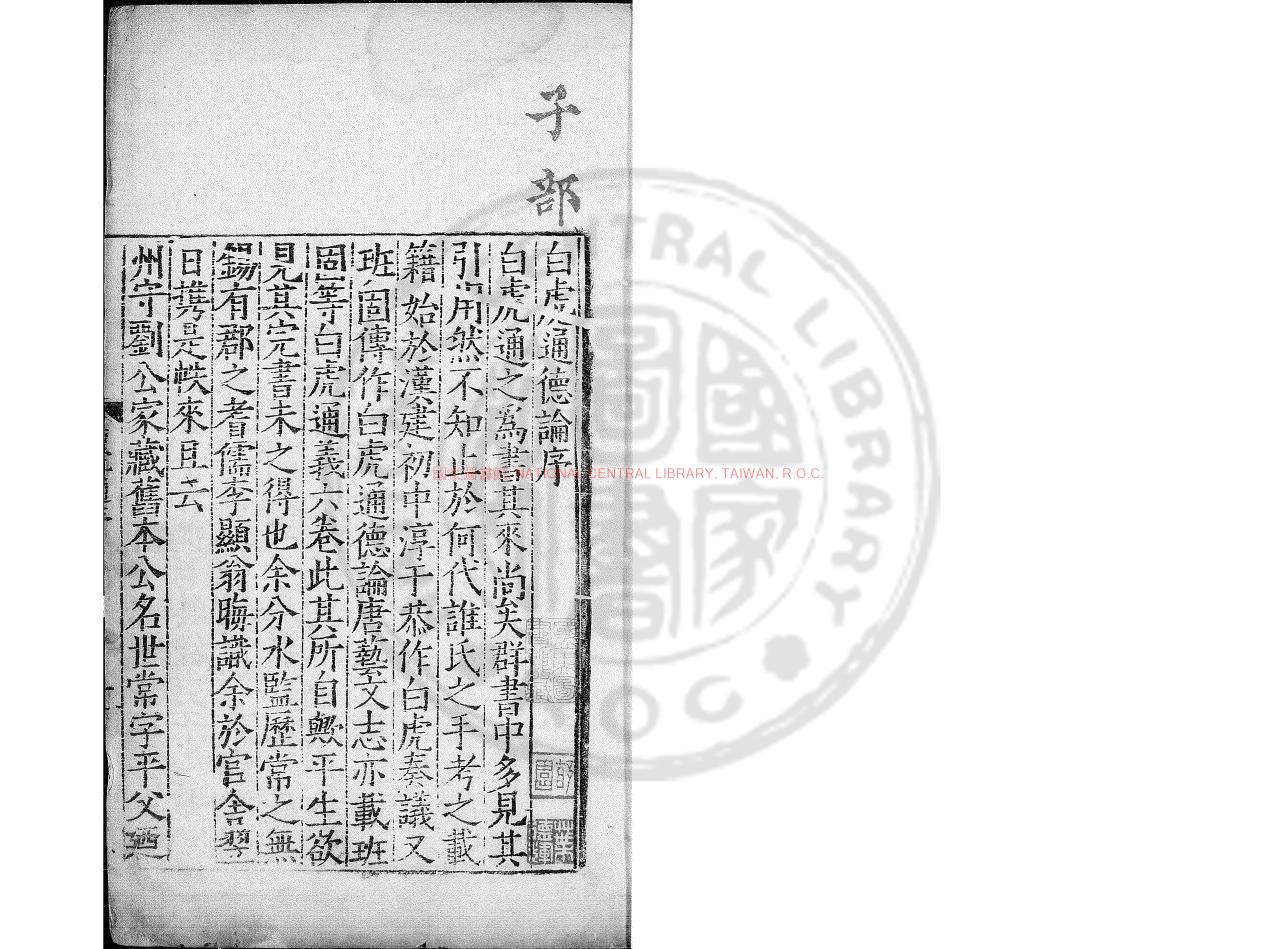 子部
白虎通德論序
白虎通之爲書其來尚矣群書中多見其
引用然不知止於何代誰氏之手考之載
籍始於漢建初中淳于恭作白虎奏議又
班固傳作白虎通德論唐藝文志亦載班
固等白虎通義六卷此其所自歟平生欲
見其完書未之得也余分水監歷常之無
錫有郡之耆儒李顯翁晦識余於官舍翌
日携是帙來且云
州守劉公家藏舊本公名世常字平父廼
NATIONAL CENTRAL LIBRARY, TAIWAN, R.O.C.
CENTRAL LIBRARY